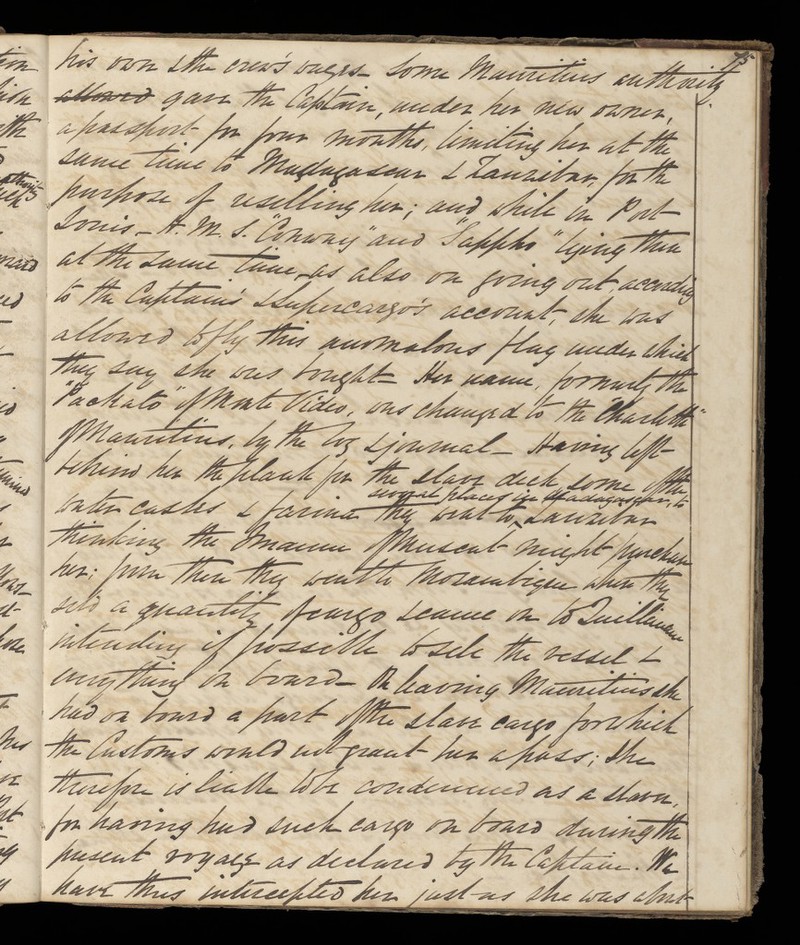 75
his own & the crew's wages - Some Mauritius authority
allowed gave the Captain, under her new owner,
a passport for four months, limiting her at the
same time to Madagascar & Zanzibar, for the
purpose of reselling her; and while in Port
Louis - H. M. S. "Conway" and "Sappho" lying there
at the same time, as also on going out, according
to the Captain's & Supercargo's account, she was
allowed to fly this anomalous flag under which
they say she was bought - Her name, formerly the
"Pachato" of Monte Video, was changed to the "Charlotte"
of Mauritius, by the log & journal - Having left
behind her the plank for the slave deck, some of the
several places in Madagascar, to
water casks & farina they went to Zanzibar
thinking the Imaum of Muscat might purchase
her; from there they went to Mozambique where they
sold a quantity of cargo & came on to Quillimane
intending if possible to sell the vessel &
everything on board - On leaving Mauritius she
had on board a part of the slave cargo for which
the Customs would not grant her a pass; she
therefore is liable to be condemned as a slaver,
for having had such cargo on board during the
present voyage as declared by the Captain. We
have thus intercepted her just as she was about